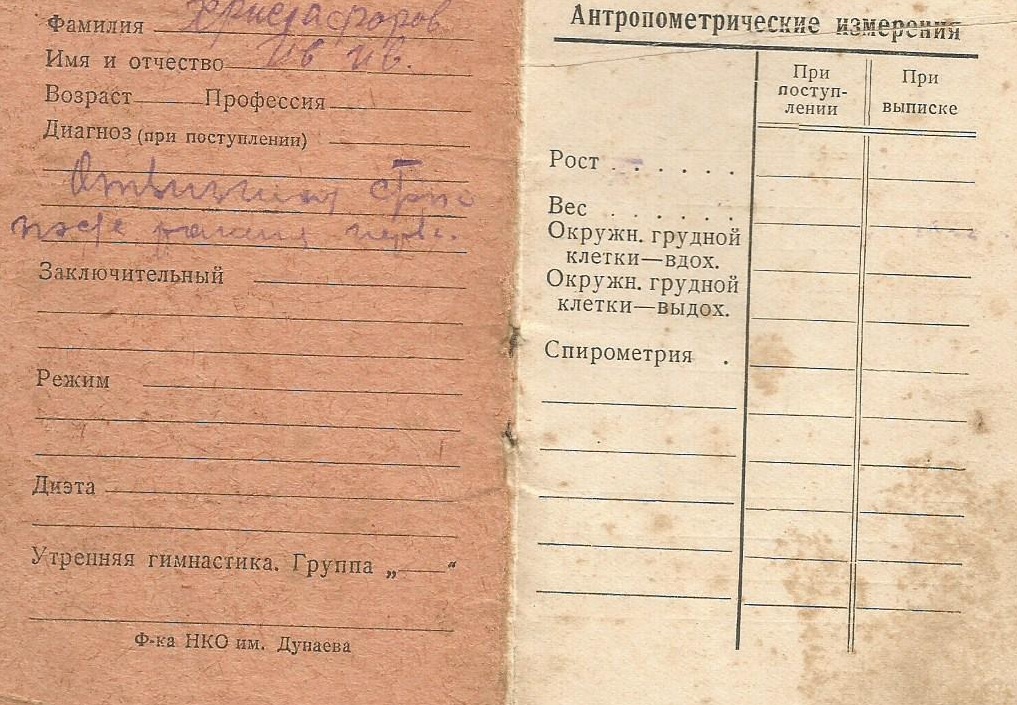 Фамилия Христафоров
Имя и отчество Ив Ив.
Возраст Профессия
Диагноз (при поступлении)
после
Заключительный
Режим
Диэта
Утренняя гимнастика. Группа „ “
Ф-ка НКО им. Дунаева
Антропометрические измерения
При поступ-
лении
При
выписке
Рост . . . . . .
Вес . . . . . .
Окружн. грудной
клетки—вдох.
Окружн. грудной
клетки—выдох.
Спирометрия .